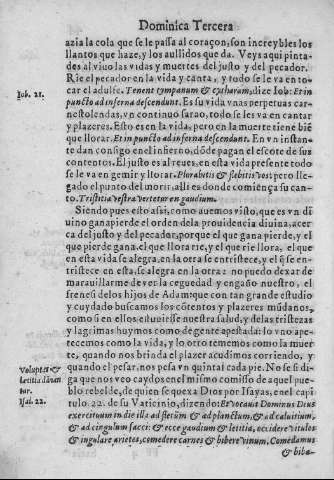 Dominica Tercera
azia la cola que se le passa al coraçon, son increybles los
llantos que haze, y los aullidos que da. Veys aqui pinta-
des al viuo las vidas y muertes del justo y del pecador.
Rie el pecador en la vida y canta, y todo se le va en to-
Iob. 21.
car el adufe. Tenent tympanum & cytharam, dize Iob: Et in
puncto ad inferna descendunt. Es su vida vnas perpetuas car-
nestolendas, vn continuo sarao, todo se les va en cantar
y plazeres. Esto es en la vida, pero en la muerte tiene biẽ
que llorar. Et in puncto ad inferna descendunt. En vn instan-
te dan consigo en el infierno, dõde pagan el escote de sus
contentos. El justo es al reues, en esta vida presente todo
se le va en gemir y llorar. Plorabitis & flebitis vos: pero lle-
gado el punto del morir, alli es donde comiença su can-
to. Tristitia vestra vertetur in gaudium.
Siendo pues esto assi, como auemos visto, que es vn di
uino ganapierde el orden de la prouidencia diuina, acer-
ca del justo y del pecador, porque el que gana pierde, y el
que pierde gana: el que llora rie, y el que rie llora, el que
en esta vida se alegra, en la otra se entristece, y el q̃ se en-
tristece en esta, se alegra en la otra: no puedo dexar de
marauillarme de ver la ceguedad y engaño nuestro, el
frenesi de los hijos de Adam: que con tan grande estudio
y cuydado buscamos los cõtentos y plazeres mũdanos,
como si en ellos estuuiesse nuestra salud, y de las tristezas
y lagrimas huymos como de gente apestada: lo vno ape-
tecemos como la vida, y lo otro tememos como la muer
te, quando nos brinda el plazer acudimos corriendo, y
quando el pesar, nos pesa vn quintal cada pie. No se si di-
Voluptas &
letitia dãnan
tur.
ga que nos veo caydos en el mismo comisso de aquel pue-
blo rebelde, de quien se quexa Dios por Isayas, en el capi
Isai. 22.
tulo. 22. de su Vaticinio, dizendo: Et vocauit Dominus Deus
exercituum in die illa ad fletum & ad planctum, & ad caluitium,
& ad cingulum sacci: & ecce gaudium & letitia, occidere vitulos
& iugulare arietes, comedere carnes & bibere vinum. Comedamus
& biba-